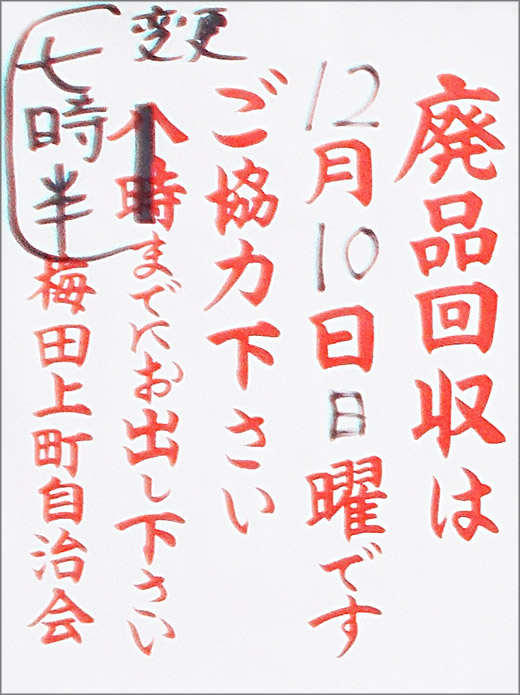 廃品回収は
12月10日日曜です
ご協力下さい
変更
八時までにお出し下さい
七時半
梅田上町自治会